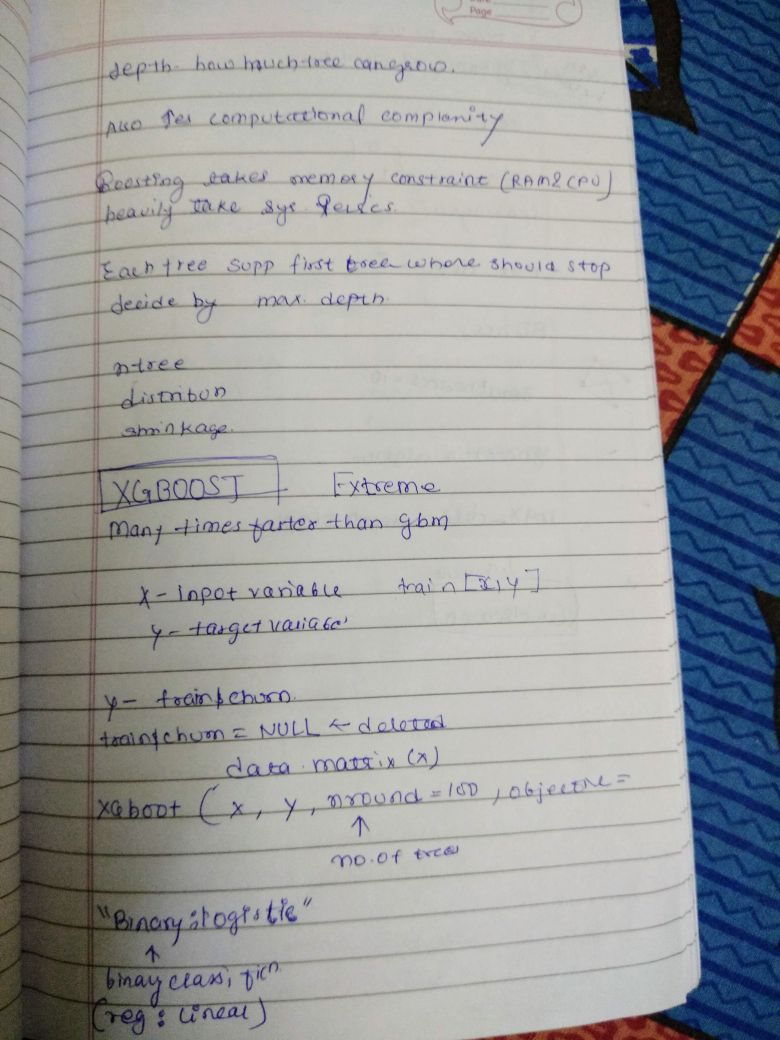 Page
depth - how much tree can grow.
Also for computational complexity
Boosting takes memory constraint (RAM & CPU)
heavily take sys
Each tree supp first tree where should stop
decide by max. depth.
n-tree
distribon
shrinkage.
XGBOOST Extreme
Many times farter than gbm
X - Inpot variable train [x,y]
y - target variable
y - train$churn.
train$churn = NULL ← deleted
data.matrix (x)
XGboot ( x, y, nround = 100, objective =
↑
no. of trees
"Binary:logistic"
↑
binay classificn
(reg : linear)